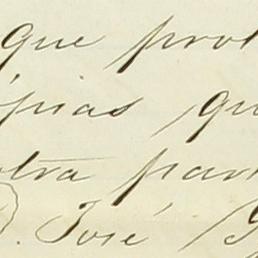 que prot
ópias qu
otra par
D. José